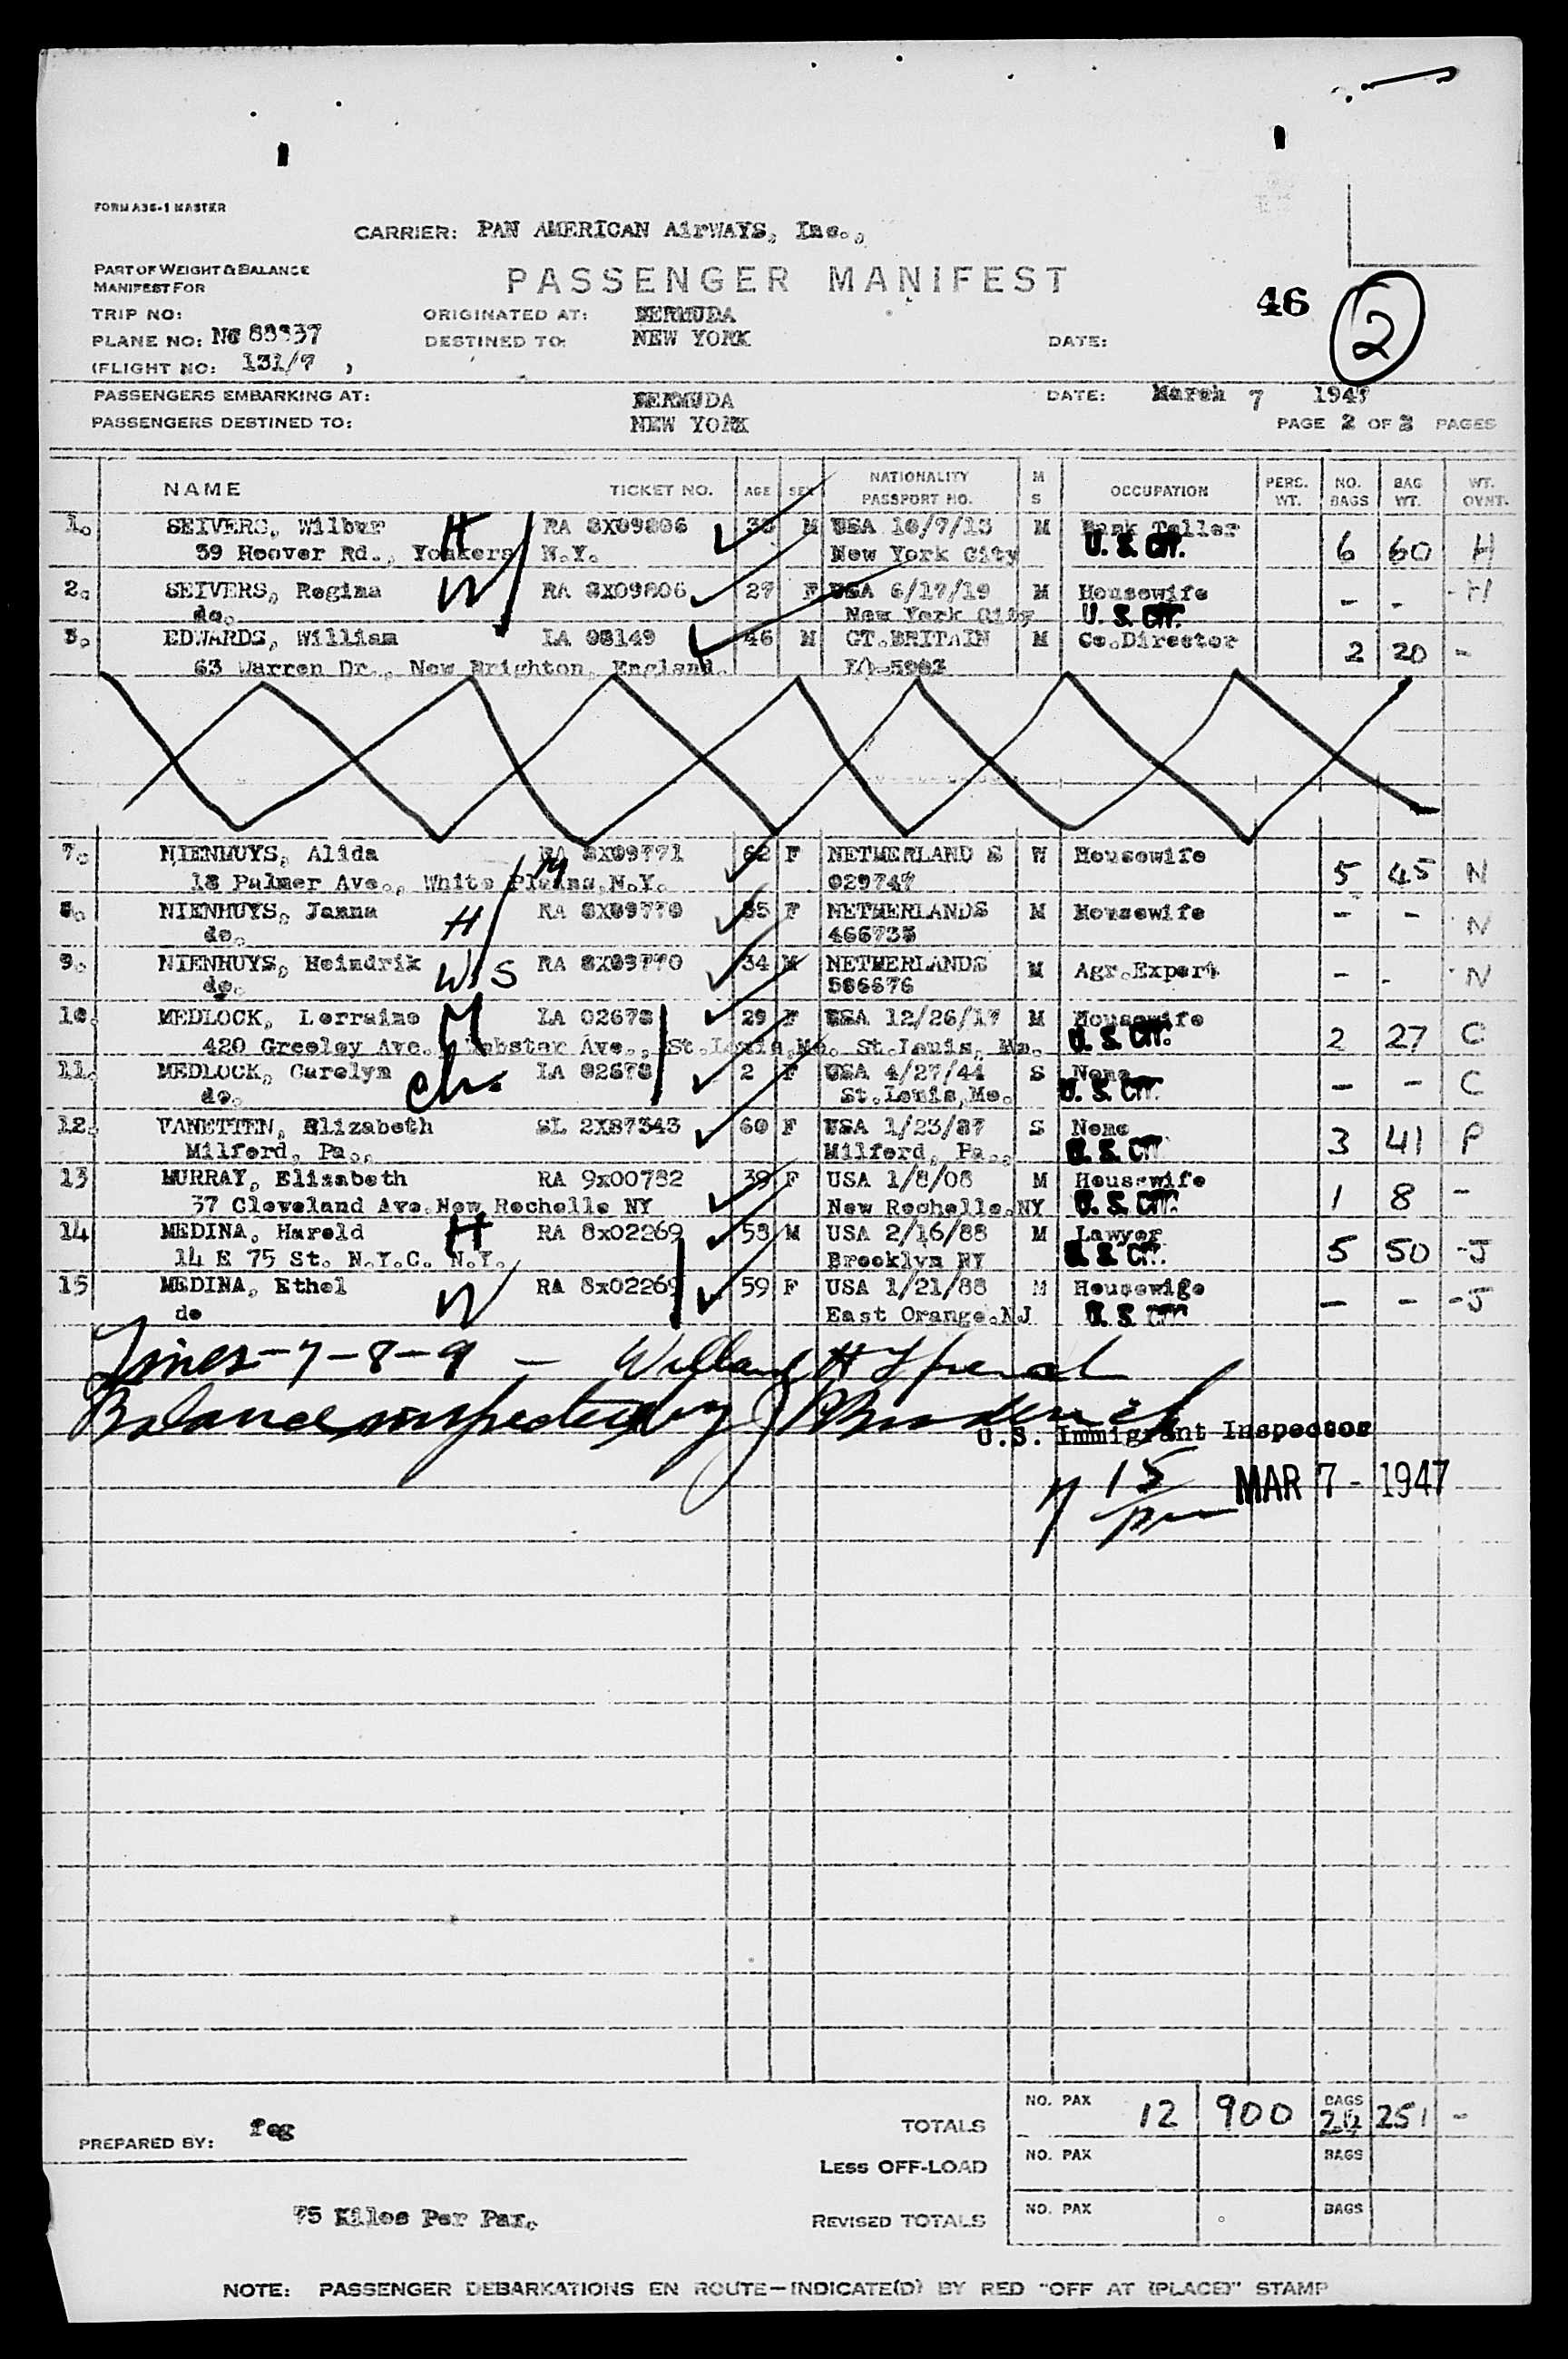 FORM A36-1 MASTER
CARRIER: PAN AMERICAN AirWAYS, Inc.,
PART OF WEIGHT & BALANCE
MANIFEST FOR
PASSENGER MANIFEST
46 2
TRIP NO: ORIGINATED AT: BERMUDA
PLANE NO: NC 88837 DESTINED TO: NEW YORK DATE:
(FLIGHT NO: 131/7 )
PASSENGERS EMBARKING AT: BERMUDA DATE: March 7 1947
PASSENGERS DESTINED TO: NEW YORK PAGE 2 OF 2 PAGES
NAME TICKET NO. AGE SEX NATIONALITY PASSPORT NO. M S OCCUPATION PERS. WT. NO. BAGS BAG WT. WT. OVNT.
1. SEIVERS, Wilbur H RA 8X09806 33 M USA 10/7/13 M Bank Teller 6 60 H
39 Hoover Rd., Yonkers N.Y. New York City U. S. CIT.
2. SEIVERS, Regina W RA 8X09806 27 F USA 6/17/19 M Housewife - - -H
do. New York City U. S. CIT.
3. EDWARDS, William LA 03149 46 M GT.BRITAIN M Co.Director 2 20 -
63 Warren Dr., New Brighton, England.
7. NIENHUYS, Alida M RA 8X09771 62 F NETHERLAND S W Housewife 5 45 N
18 Palmer Ave., White Plains,N.Y. 029747
8. NIENHUYS, Janna H RA 8X09770 35 F NETHERLANDS M Housewife - - N
do. 466733
9. NIENHUYS, Heindrik W S RA 8X09770 34 M NETHERLANDS M Agr.Expert - - N
do. 586676
10. MEDLOCK, Lorraine M LA 02678 29 F USA 12/26/17 M Housewife 2 27 C
420 Greeley Ave., Webster Ave., St.Louis,Mo. St.Louis, Mo. U. S. CIT.
11. MEDLOCK, Carolyn ch. LA 02678 2 F USA 4/27/44 S None - - C
do. St.Louis,Mo. U. S. CIT.
12. VANETTEN, Elizabeth SL 2X87343 60 F USA 1/23/87 S None 3 41 P
Milford, Pa., Milford, Pa., U. S. CIT.
13 MURRAY, Elisabeth RA 9x00782 39 F USA 1/8/08 M Housewife 1 8 -
37 Cleveland Ave.New Rochelle NY New Rochelle.NY U. S. CIT.
14 MEDINA, Harold H RA 8x02269 58 M USA 2/16/88 M Lawyer 5 50 -J
14 E 75 St. N.Y.C. N.Y. Brooklyn NY U. S. CIT.
15 MEDINA, Ethel W RA 8x02269 59 F USA 1/21/88 M Housewige - - -J
do East Orange.NJ U. S. CIT.
Lines-7-8-9 - H
Balance inspected by
U.S. Immigrant Inspector
7 15 pm MAR 7 - 1947
TOTALS NO. PAX 12 900 BAGS 24 251 -
PREPARED BY: feg
LESS OFF-LOAD NO. PAX BAGS
75 Kilos Per Pax.
REVISED TOTALS NO. PAX BAGS
NOTE: PASSENGER DEBARKATIONS EN ROUTE—INDICATE(D) BY RED "OFF AT (PLACE)" STAMP